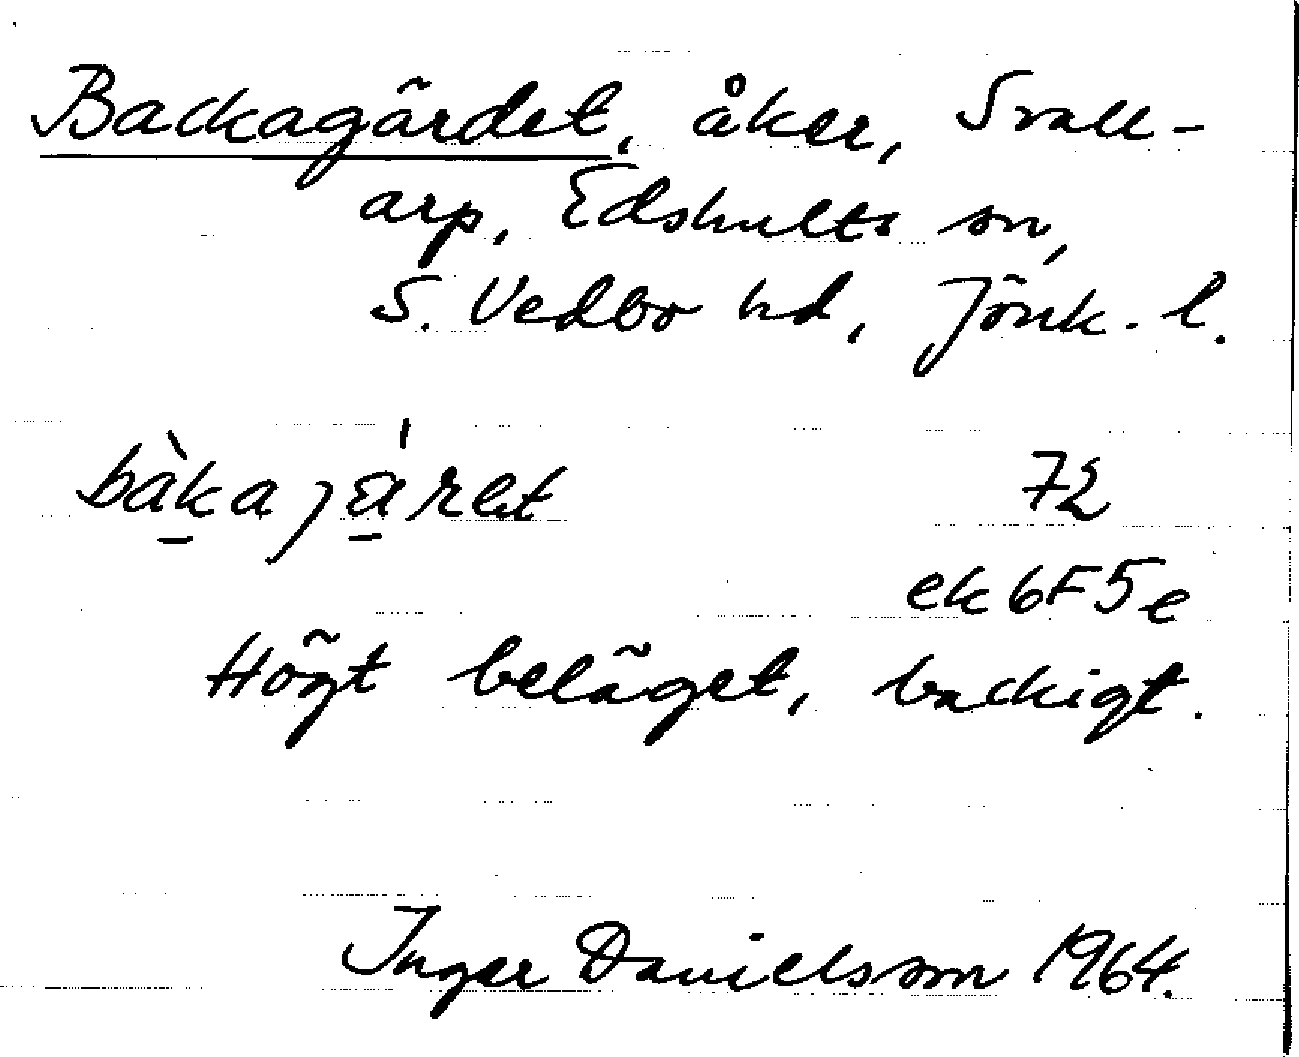 Backagärdet, åker, Svall-
arp, Edshults sn,
S. Vedbo hd, Jönk. l.
bàkajäret 72
ek 6F5e
Högt beläget, backigt.
Inger Danielsson 1964.